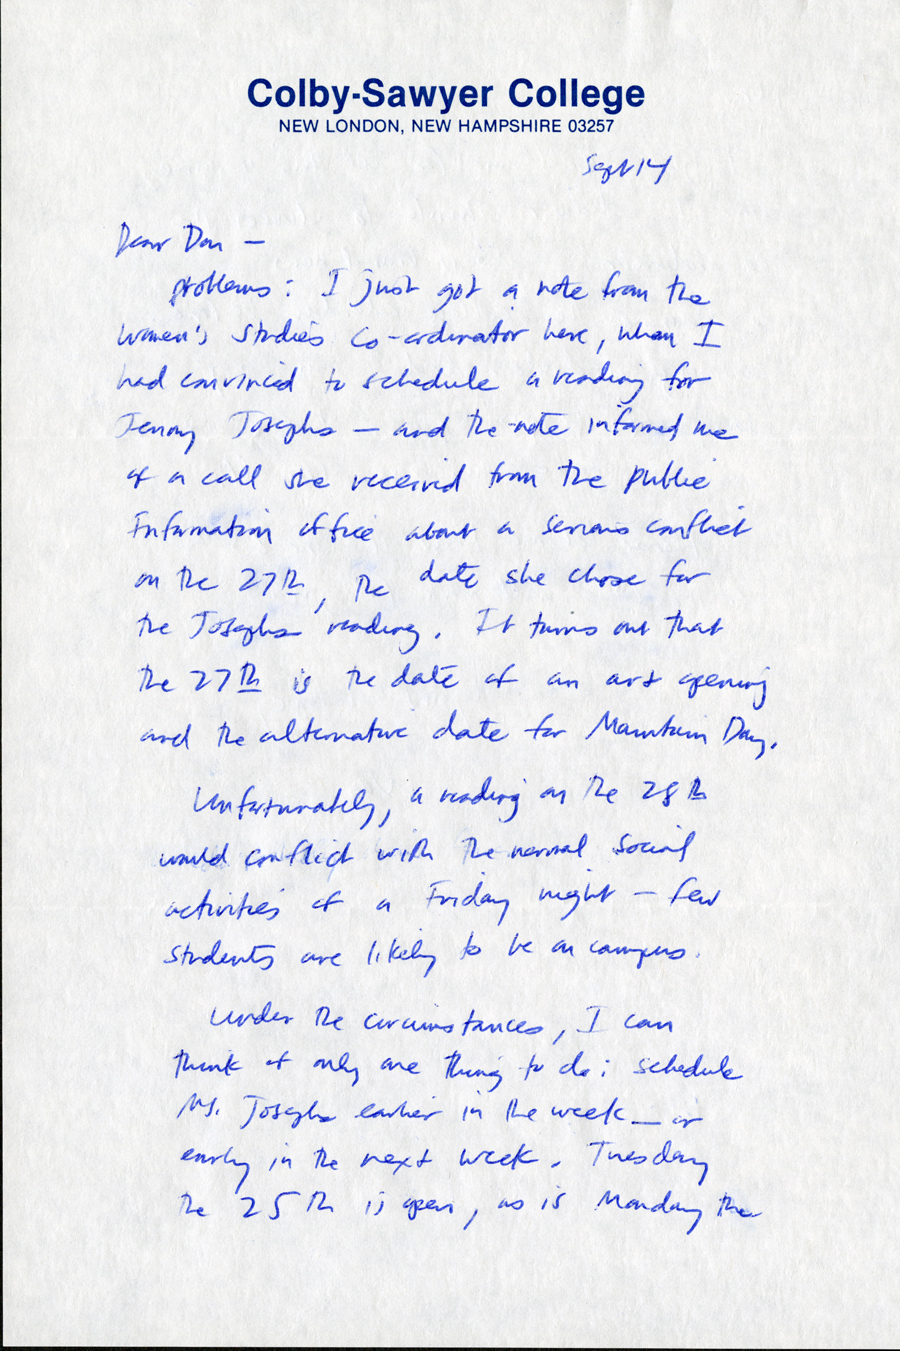 Colby-Sawyer College
NEW LONDON, NEW HAMPSHIRE 03257
Sept 14
Dear Don —
problems: I just got a note from the
women's studies co-ordinator here, whom I
had convinced to schedule a reading for
Jenny Josephs — and the note informed me
of a call she received from the public
information office about a serious conflict
on the 27th, the date she chose for
the Josephs reading. It turns out that
the 27th is the date of an art opening
and the alternative date for Mountain Day.
Unfortunately, a reading on the 28th
would conflict with the normal social
activities of a Friday night — few
students are likely to be on campus.
Under the circumstances, I can
think of only one thing to do: schedule
Ms. Josephs earlier in the week — or
early in the next week. Tuesday
the 25th is open, as is Monday the